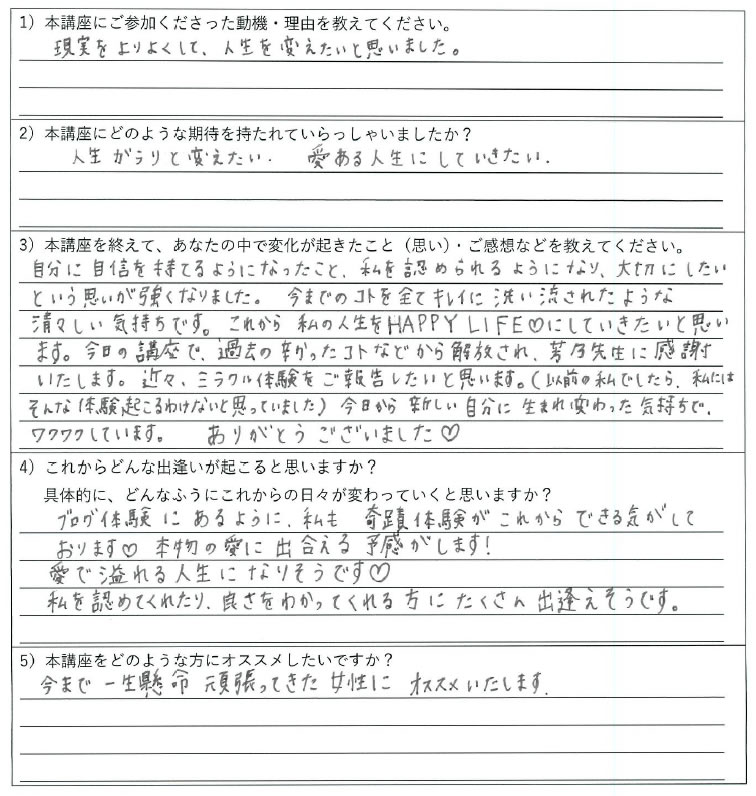 1）本講座にご参加くださった動機・理由を教えてください。
現実をよりよくして、人生を変えたいと思いました。
2）本講座にどのような期待を持たれていらっしゃいましたか？
人生がらりと変えたい. 愛ある人生にしていきたい.
3）本講座を終えて、あなたの中で変化が起きたこと（思い）・ご感想などを教えてください。
自分に自信を持てるようになったこと、私を認められるようになり、大切にしたい
という思いが強くなりました。 今までのコトを全てキレイに洗い流されたような
清々しい気持ちです。これから私の人生をHAPPY LIFE♡にしていきたいと思い
ます。今日の講座で、過去の辛かったコトなどから解放され、芳乃先生に感謝
いたします。近々、ミラクル体験をご報告したいと思います。(以前の私でしたら、私には
そんな体験起こるわけないと思っていました) 今日から新しい自分に生まれ変わった気持ちで、
ワクワクしています。 ありがとうございました♡
4）これからどんな出逢いが起こると思いますか？
具体的に、どんなふうにこれからの日々が変わっていくと思いますか？
ブログ体験にあるように、私も奇蹟体験がこれからできる気がして
おります♡ 本物の愛に出合える予感がします!
愛で溢れる人生になりそうです♡
私を認めてくれたり、良さをわかってくれる方にたくさん出逢えそうです。
5）本講座をどのような方にオススメしたいですか？
今まで一生懸命頑張ってきた女性にオススメいたします.